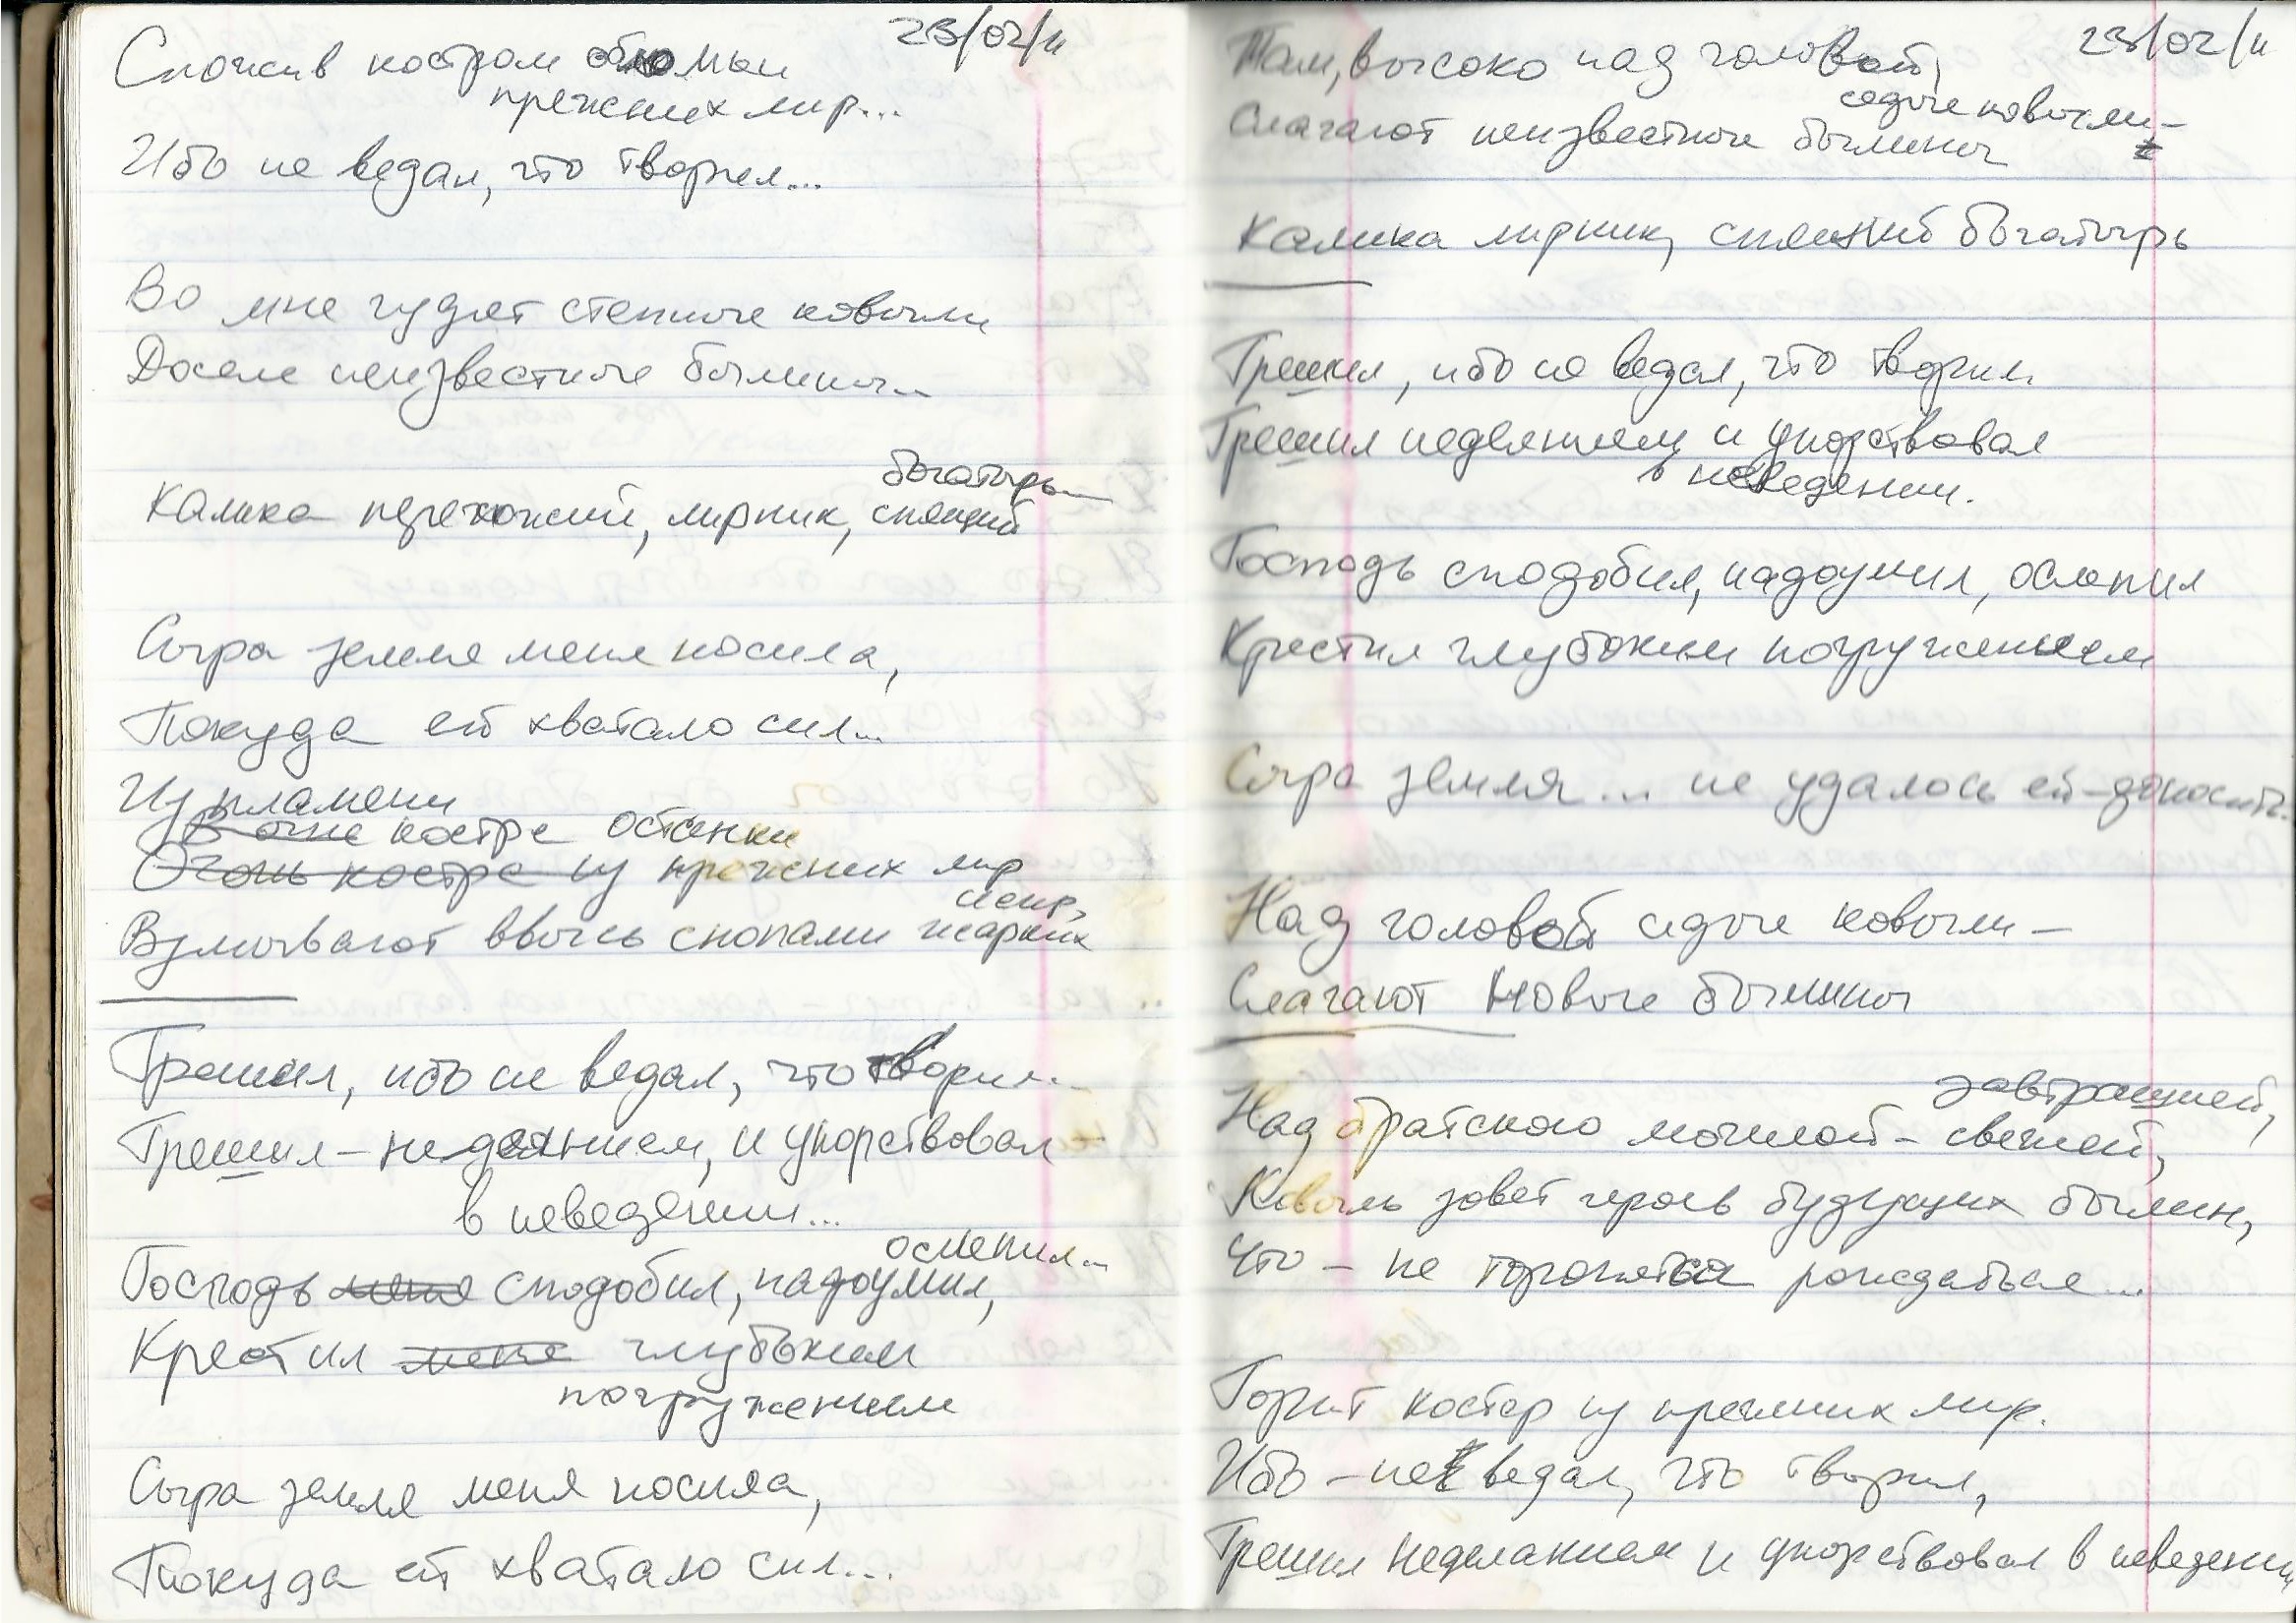 23/02/11
Сложив костром обломки
прежних мир...
Ибо не ведал, что творил...
Во мне гудят степные ковыли
Доселе неизвестные былины...
богатырь...
Калика перехожий, лирник, спящий
Сыра земля меня носила,
Покуда ей хватало сил...
Из пламени
В огне костра останки
Огонь костра из прежних мир
искр,
Взмывают ввысь снопами жарких
Грешил, ибо не ведал, что творил...
Грешил – недеянием, и упорствовал –
в неведении...
ослепил...
Господь меня сподобил, надоумил,
Крестил меня глубоким
погружением
Сыра земля меня носила,
Покуда ей хватало сил...
23/02/11
Там, высоко над головой,
седые ковыли –
Слагают неизвестные былины
Калика лирник, спящий богатырь
Грешил, ибо не ведал, что творил
Грешил недеянием и упорствовал
в неведении.
Господь сподобил, надоумил, ослепил
Крестил глубоким погружением
Сыра земля... не удалось ей – доносить.
Над головой седые ковыли –
Слагают новые былины
завтрашней,
Над братскою могилой – свежей,
Ковыль зовет героев будущих былин,
Что – не торопятся рождаться...
Горит костер из прежних мир.
Ибо – не ведал, что творил,
Грешил неделанием и упорствовал в неведении